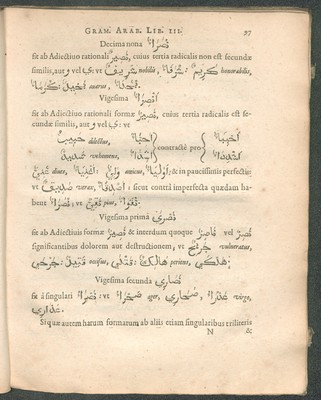 GRAM. ARAB. LIB. III. 97
Decima nona نُصَرَآءُ
sit ab Adiectiuo rationali نَصِيرٌ, cuius tertia radicalis non est secundæ
similis, aut و vel ي: vt شَرِيفٌ nobilis, شُرَفَآءُ: كَرِيمٌ honorabilis,
كُرَمَآءُ: بَخِيلٌ auarus, بُخَلَآءُ.
Vigesima أَنْصِرَآءُ
sit ab Adiectiuo rationali formæ نَصِيرٌ, cuius tertia radicalis est secundæ
similis, aut و vel ي: vt
حَبِيبٌ dilectus, أَحِبَّآءُ contractè pro أَحْبِبَآءُ
شَدِيدٌ vehemens, أَشِدَّآءُ أَشْدِدَآءُ
غَنِيٌّ diues, أَغْنِيَآءُ: وَلِيٌّ amicus, أَوْلِيَآءُ: & in paucissimis perfectis:
vt صَدِيقٌ verax, أَصْدِقَآءُ: sicut contrà imperfecta quædam habent
نُصَرَآءُ: vt تَقِيٌّ pius, تُقَوَآءُ.
Vigesima prima نَصْرَى
sit ab Adiectiuis formæ نَصِيرٌ & interdum quoque نَاصِرٌ vel نَصِرٌ
significantibus dolorem aut destructionem, vt جَرِيحٌ vulneratus,
جَرْحَى: قَتِيلٌ occisus, قَتْلَى: هَالِكٌ periens, هَلْكَى.
Vigesima secunda نَصَارَى
sit à singulari نَصْرَآءُ: vt صَحْرَآءُ ager, صَحَارَى: عَذْرَآءُ virgo,
عَذَارَى.
Si quæ autem harum formarum ab aliis etiam singularibus triliteris
N &